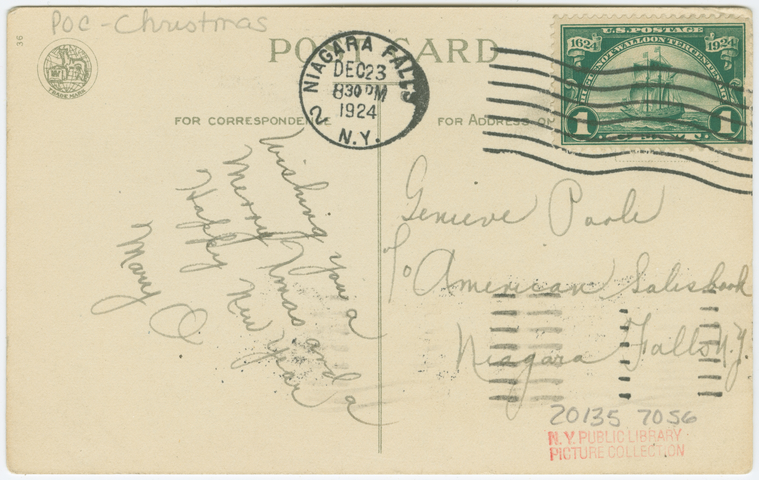 POC - Christmas
36
TRADE MARK
POST CARD
NIAGARA FALLS
DEC 23
8 30 PM
1924
N.Y.
2
U.S. POSTAGE
1624 1924
HUGUENOT WALLOON TERCENTENARY
1 1
FOR CORRESPONDENCE
FOR ADDRESS ON
Wishing you a
Merry Xmas and a
Happy New Year
Mary O
Genieve Poole
c/o American Salesbook
Niagara Falls N.Y.
20135 7056
N.Y. PUBLIC LIBRARY
PICTURE COLLECTION